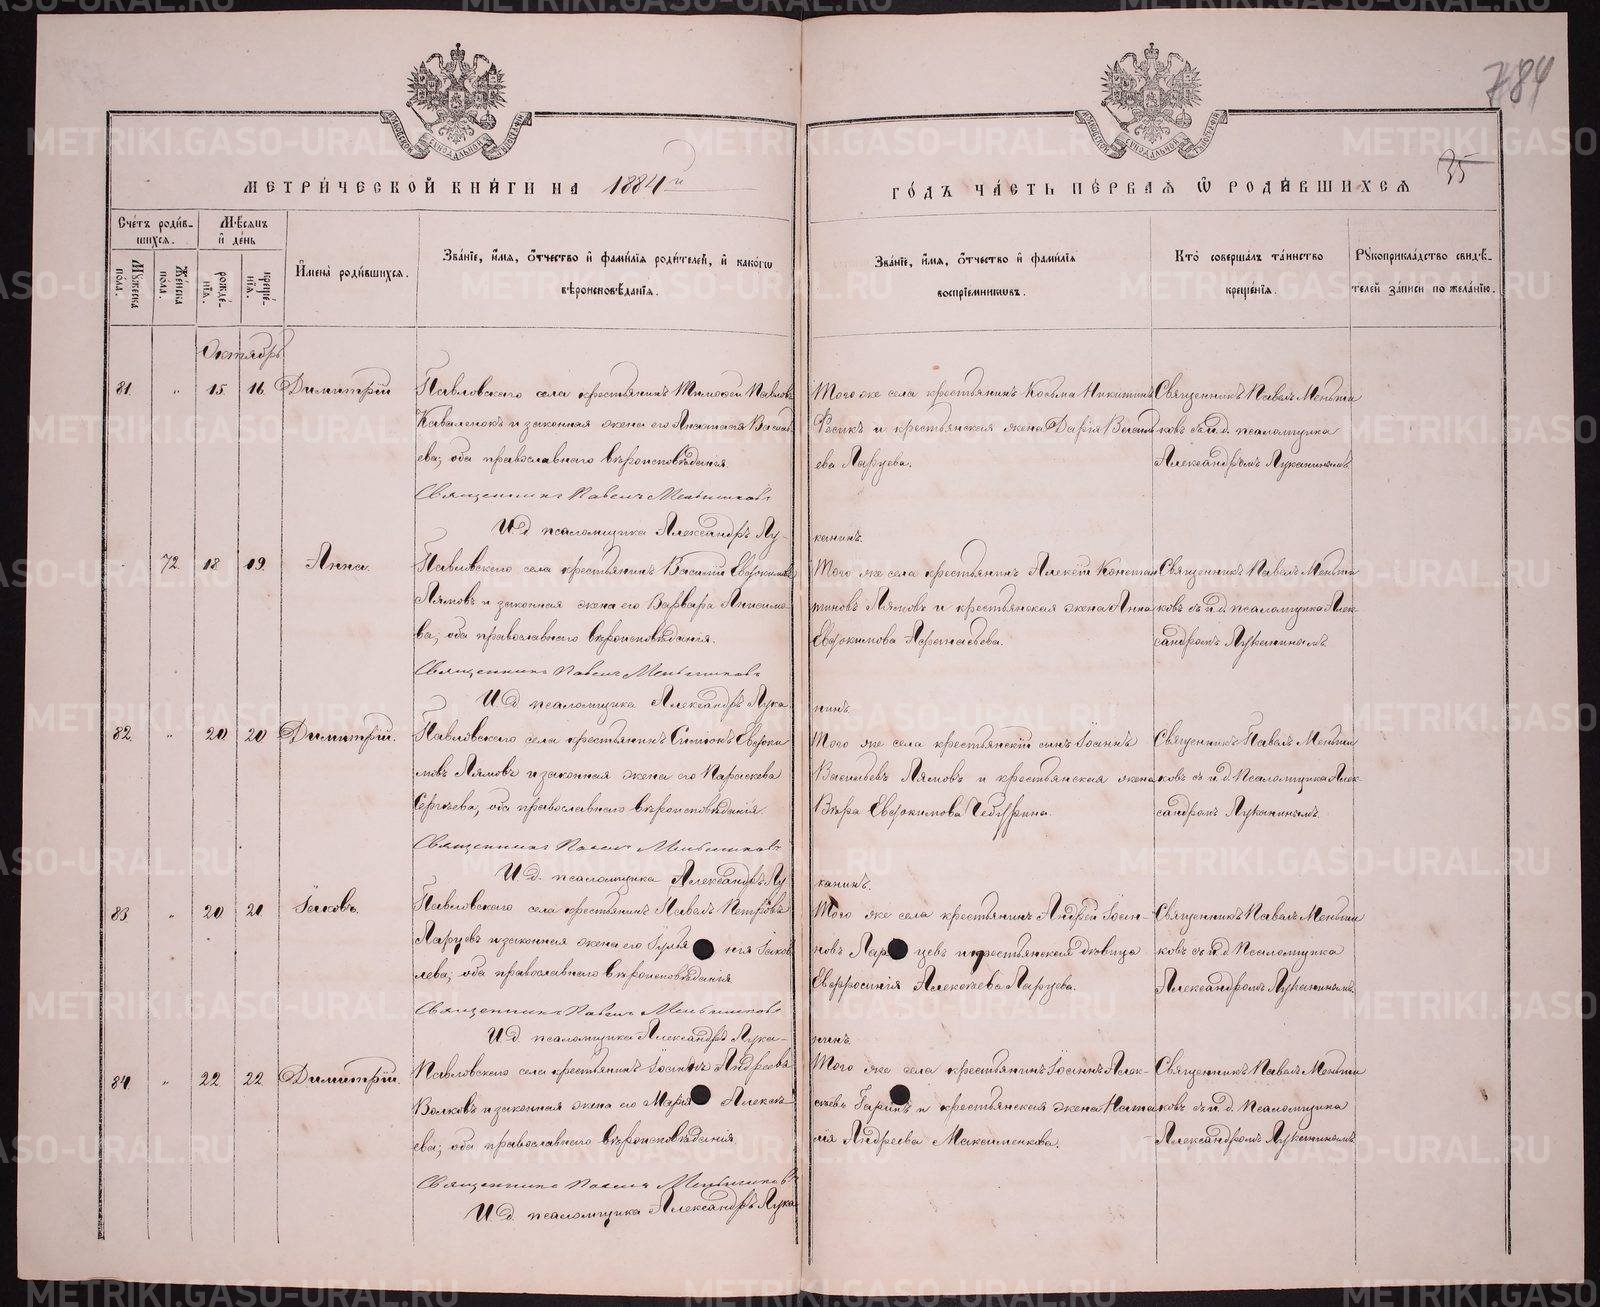 784
35
МЕТРИЧЕСКОЙ КНИГИ НА 1884й
ГОДЪ ЧАСТЬ ПЕРВАЯ Ѿ РОДИВШИХСЯ
Счетъ родив-
шихся.
Мѣсяцъ
и день
Мужеска
пола.
Женска
пола.
рожде-
нія.
креще-
нія.
Имена родившихся.
Званіе, имя, отчество и фамилія родителей, и какого
вѣроисповѣданія.
Званіе, имя, отчество и фамилія
воспріемниковъ.
Кто совершалъ таинство
крещенія.
Рукоприкладство свидѣ-
телей записи по желанію.
Октябрь
81. " 15. 16. Димитрій
Павловскаго села крестьянинъ Тимофей Павловъ
Коваленокъ и законная жена его Анастасія Василь
ева; оба православнаго вѣроисповѣданія.
Священникъ Павелъ Меньшиковъ
И.д. псаломщика Александръ Лу-
Того же села крестьянинъ Косьма Никитинъ
и крестьянская жена Дарія Василь
ева Ларцева.
канинъ.
Священникъ Павелъ Меньши
ковъ съ и.д. псаломщика
Александромъ Луканинымъ.
72 18 19. Анна.
Павловскаго села крестьянинъ Василій Евфокимовъ
Лямовъ и законная жена его Варвара Анисимо-
ва; оба православнаго вѣроисповѣданія.
Священникъ Павелъ Меньшиковъ
И.д. псаломщика Александръ Лука
Того же села крестьянинъ Алексѣй Констан
тиновъ Лямовъ и крестьянская жена Анна
Евфокимова Афонасьева.
нинъ.
Священникъ Павелъ Меньши
ковъ съ и.д. псаломщика Алек-
сандромъ Луканинымъ.
82. " 20 20 Димитрій.
Павловскаго села крестьянинъ Симеонъ Евфоки
мовъ Лямовъ и законная жена его Параскева
Сергѣева, оба православнаго вѣроисповѣданія.
Священникъ Павелъ Меньшиковъ
И.д. псаломщика Александръ Лу-
Того же села крестьянскій сынъ Іоаннъ
Васильевъ Лямовъ и крестьянская жена
Вѣра Евфокимова
канинъ.
Священникъ Павелъ Меньши
ковъ съ и.д. Псаломщика Алек-
сандромъ Луканинымъ.
83 " 20 21 Іаковъ.
Павловскаго села крестьянинъ Павелъ Петровъ
Ларцевъ и законная жена его Іуліанія Іаков
лева; оба православнаго вѣроисповѣданія
Священникъ Павелъ Меньшиковъ
И.д. псаломщика Александръ Лука-
Того же села крестьянинъ Андрей Іоан-
новъ Ларцевъ и крестьянская дѣвица
Евфросинія Алексѣева Ларцева.
нинъ.
Священникъ Павелъ Меньши
ковъ съ и.д. Псаломщика
Александромъ Луканинымъ.
84. " 22 22 Димитрій.
Павловскаго села крестьянинъ Іоаннъ Андреевъ
Волковъ и законная жена его Марія Алексѣ
ева; оба православнаго вѣроисповѣданія.
Священникъ Павелъ Меньшиковъ
И.д. псаломщика Александръ Лука-
Того же села крестьянинъ Іоаннъ Алек-
сѣевъ Гаринъ и крестьянская жена Ната
лія Андреева Максименкова.
Священникъ Павелъ Меньши
ковъ съ и.д. Псаломщика
Александромъ Луканинымъ.
METRIKI.GASO-URAL.RU